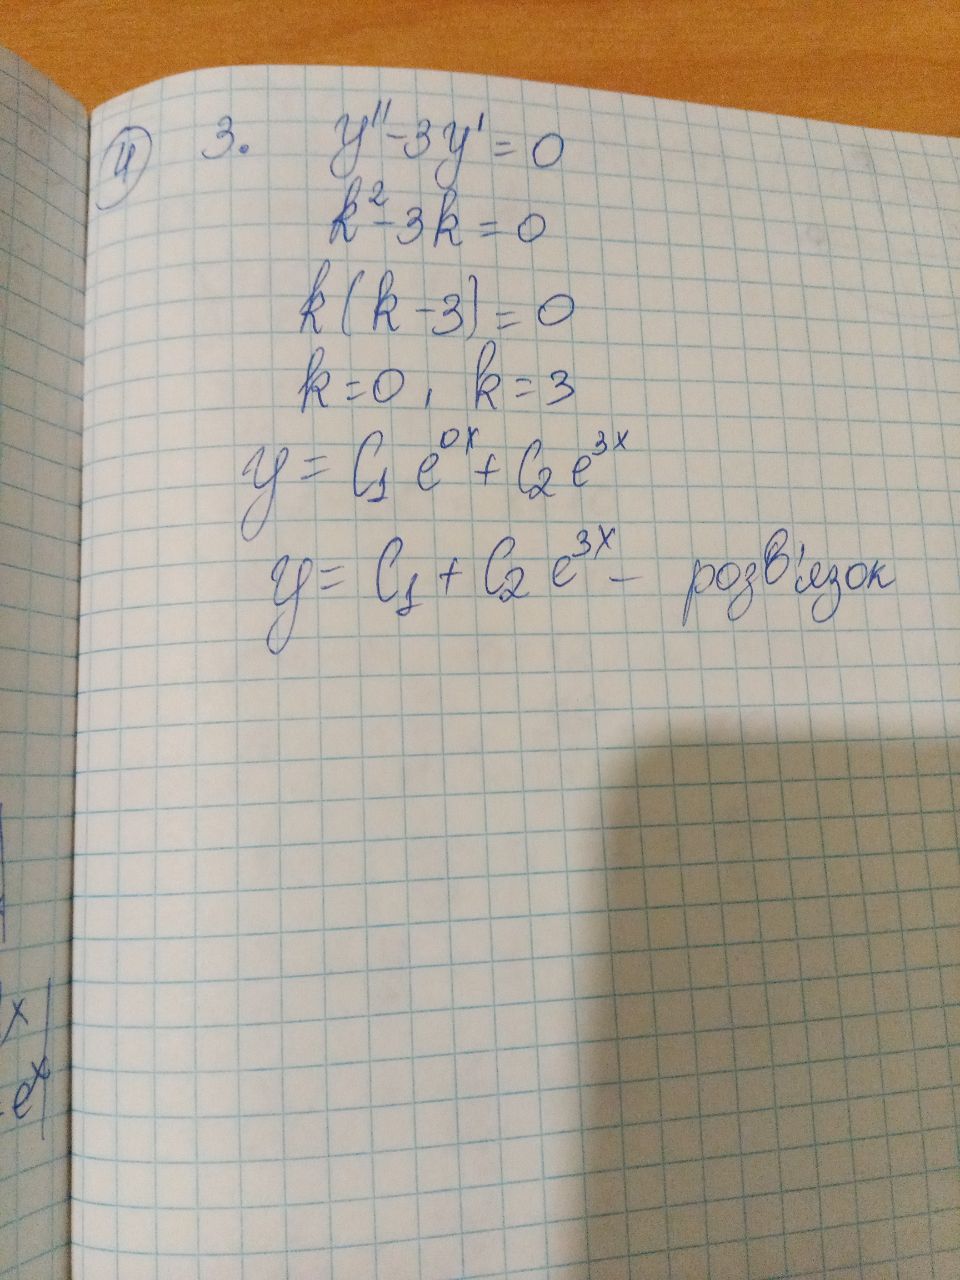 4 3. y'' - 3y' = 0
k² - 3k = 0
k(k - 3) = 0
k = 0, k = 3
y = C₁ e^{0x} + C₂ e^{3x}
y = C₁ + C₂ e^{3x} - розв'язок
x
e^x